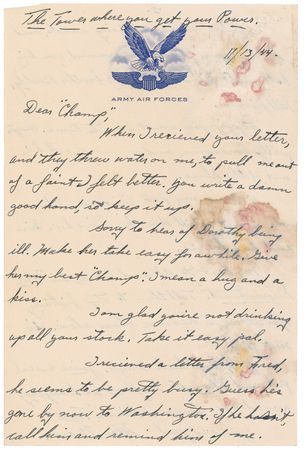 The Tower where you get your Power.
11/13/44.
ARMY AIR FORCES
Dear "Champ",
When I recieved your letter,
and they threw water on me, to pull me out
of a faint I felt better. You write a damn
good hand, so keep it up.
Sorry to hear of Dorothy being
ill. Make her take easy for awhile. Give
her my best "Champ". I mean a hug and a
kiss.
I am glad you're not drinking
up all your stock. Take it easy pal.
I recieved a letter from Fred,
he seems to be pretty busy. Guess he's
gone by now to Washington. If he hasn't,
call him and remind him of me.